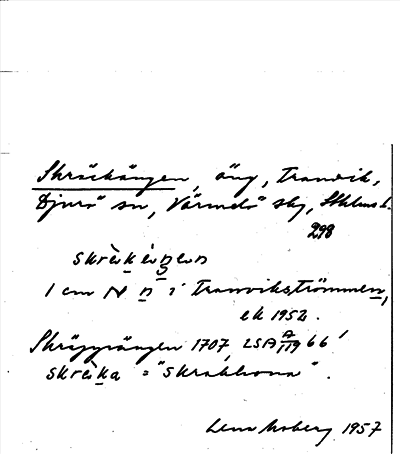 Skräckängen, äng, Tranvik,
Djurö sn, Värmdö sbg, Sthlms l.
298
skrɛ̀kɛ́ŋɛn
1 cm N n i Tranvikströmmen,
ek 1952.
Skräggrängen 1707, LSA A 119 66'
skrɛ̀ka = "skrakhona".
Lena Moberg 1957